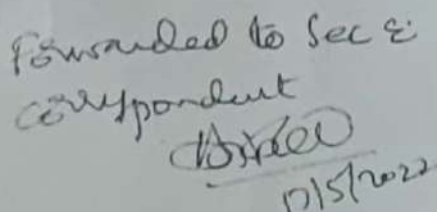 Forwarded to Sec &
correspondent
17/5/2022